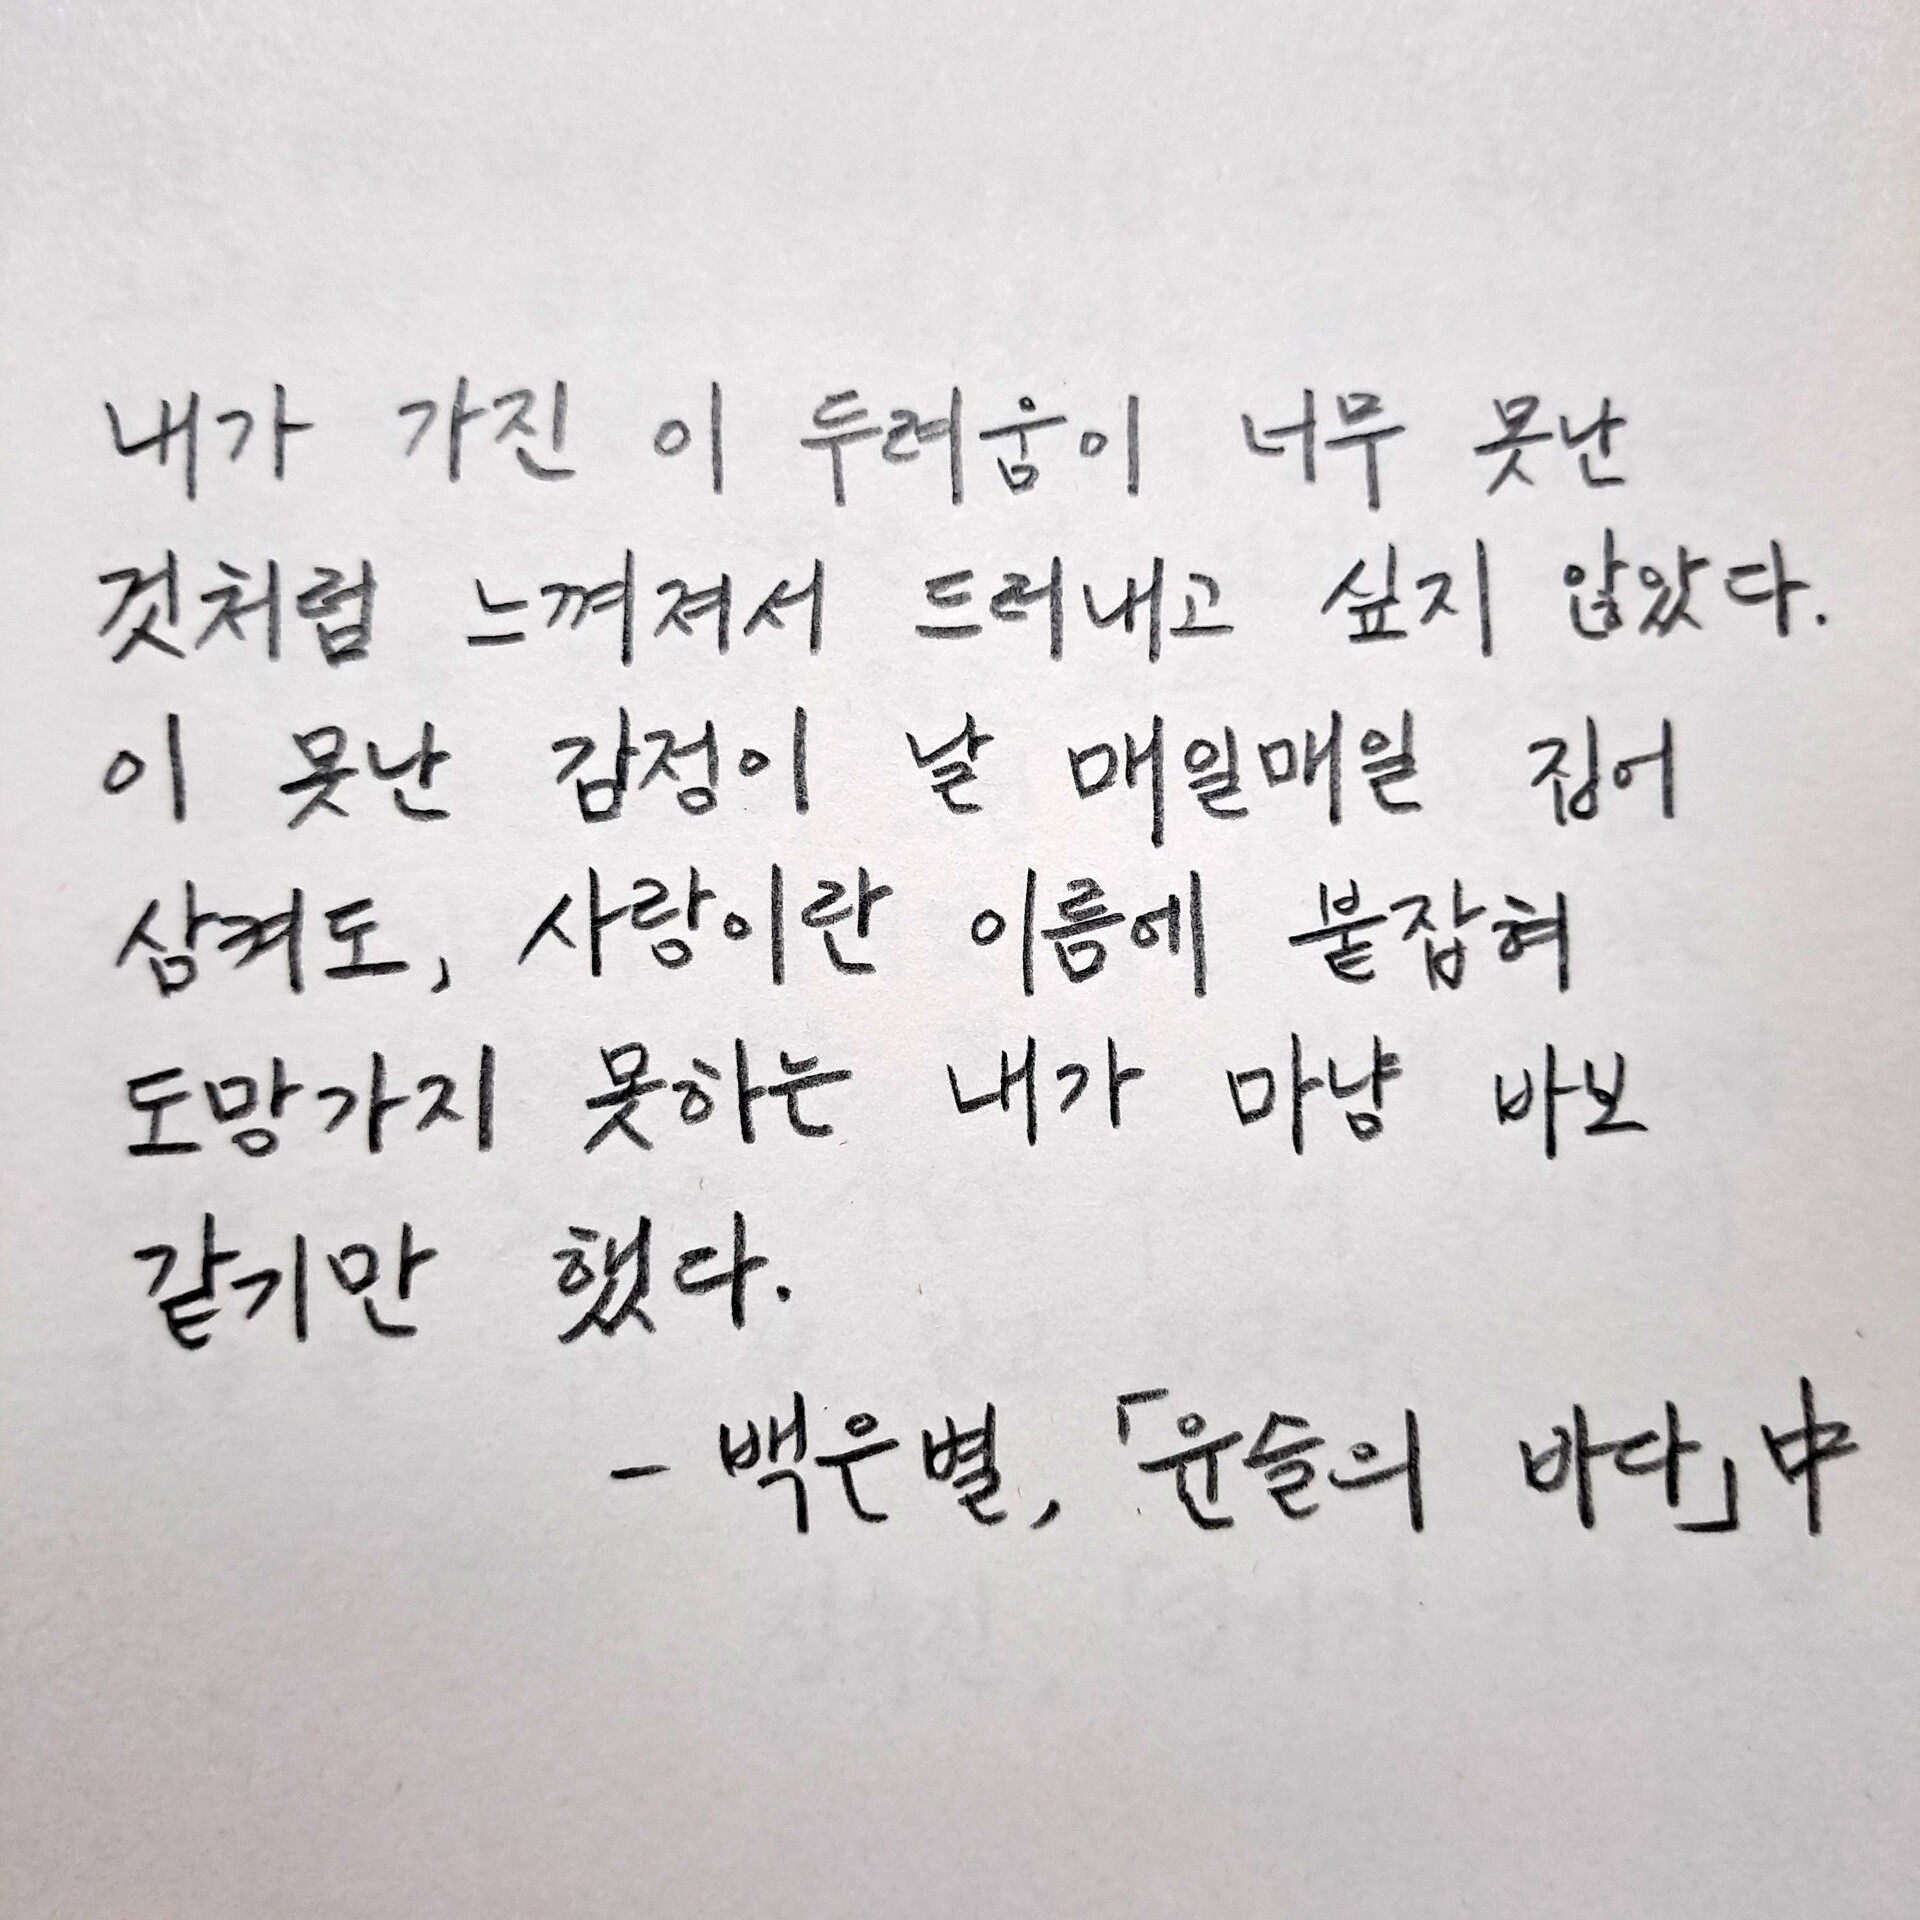 내가 가진 이 두려움이 너무 못난
것처럼 느껴져서 드러내고 싶지 않았다.
이 못난 감정이 날 매일매일 집어
삼켜도, 사랑이란 이름에 붙잡혀
도망가지 못하는 내가 마냥 바보
같기만 했다.
- 백은별, 「윤슬의 바다」中